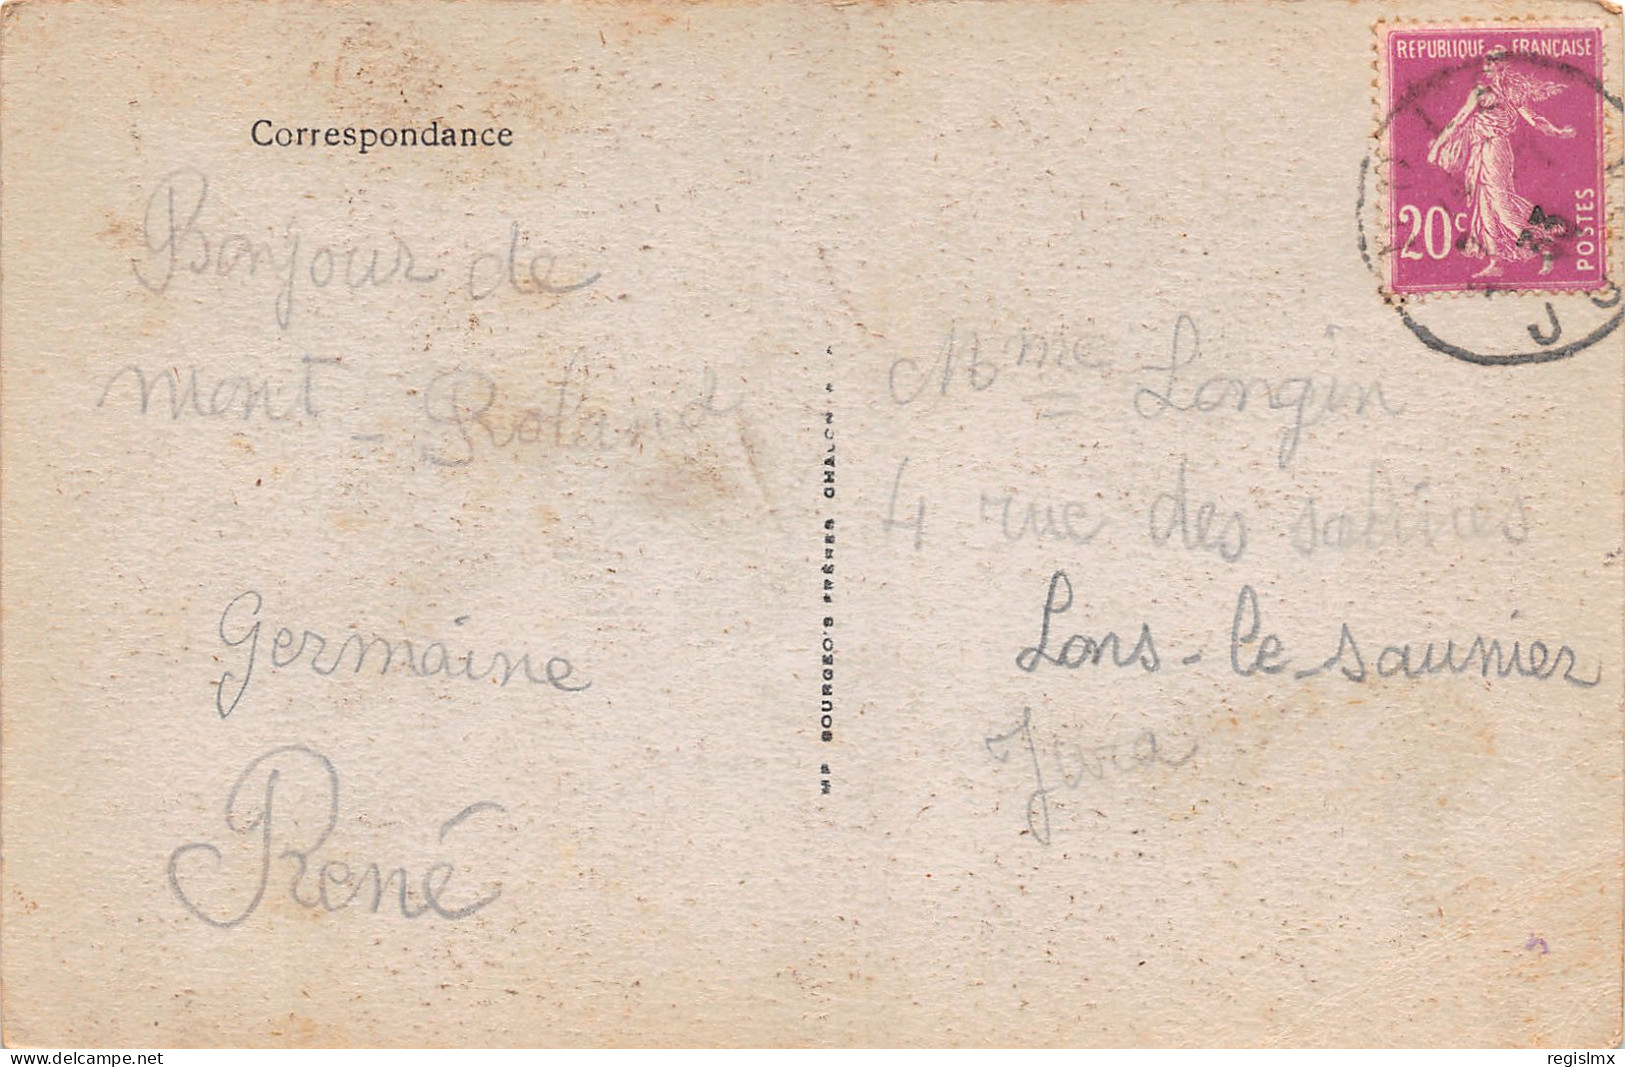 Correspondance
Bonjour de
mont - Roland
Germaine
René
IMP BOURGEOIS FRÈRES CHALON
REPUBLIQUE FRANÇAISE
20c
POSTES
33
Mme Longin
4 rue des salines
Lons-le-saunier
Jura
delcampe.net
regislmx